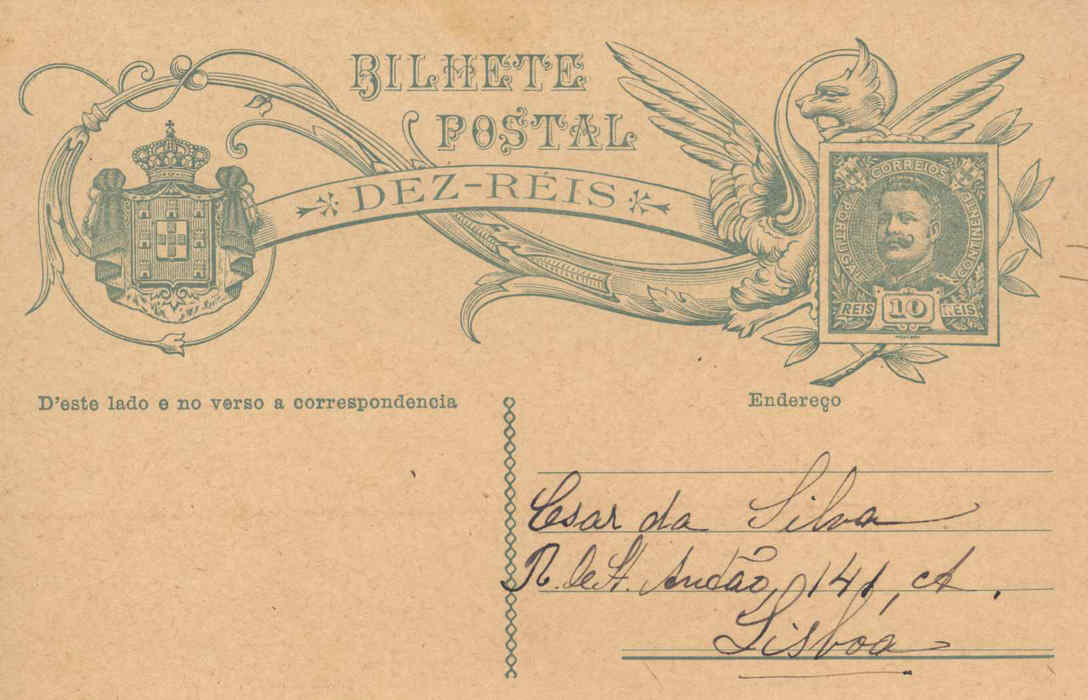 BILHETE
POSTAL
DEZ-RÉIS
CORREIOS
PORTUGAL
CONTINENTE
REIS 10 REIS
D'este lado e no verso a correspondencia
Endereço
Cesar da Silva
R. de St. Antão, 141, A.
Lisboa